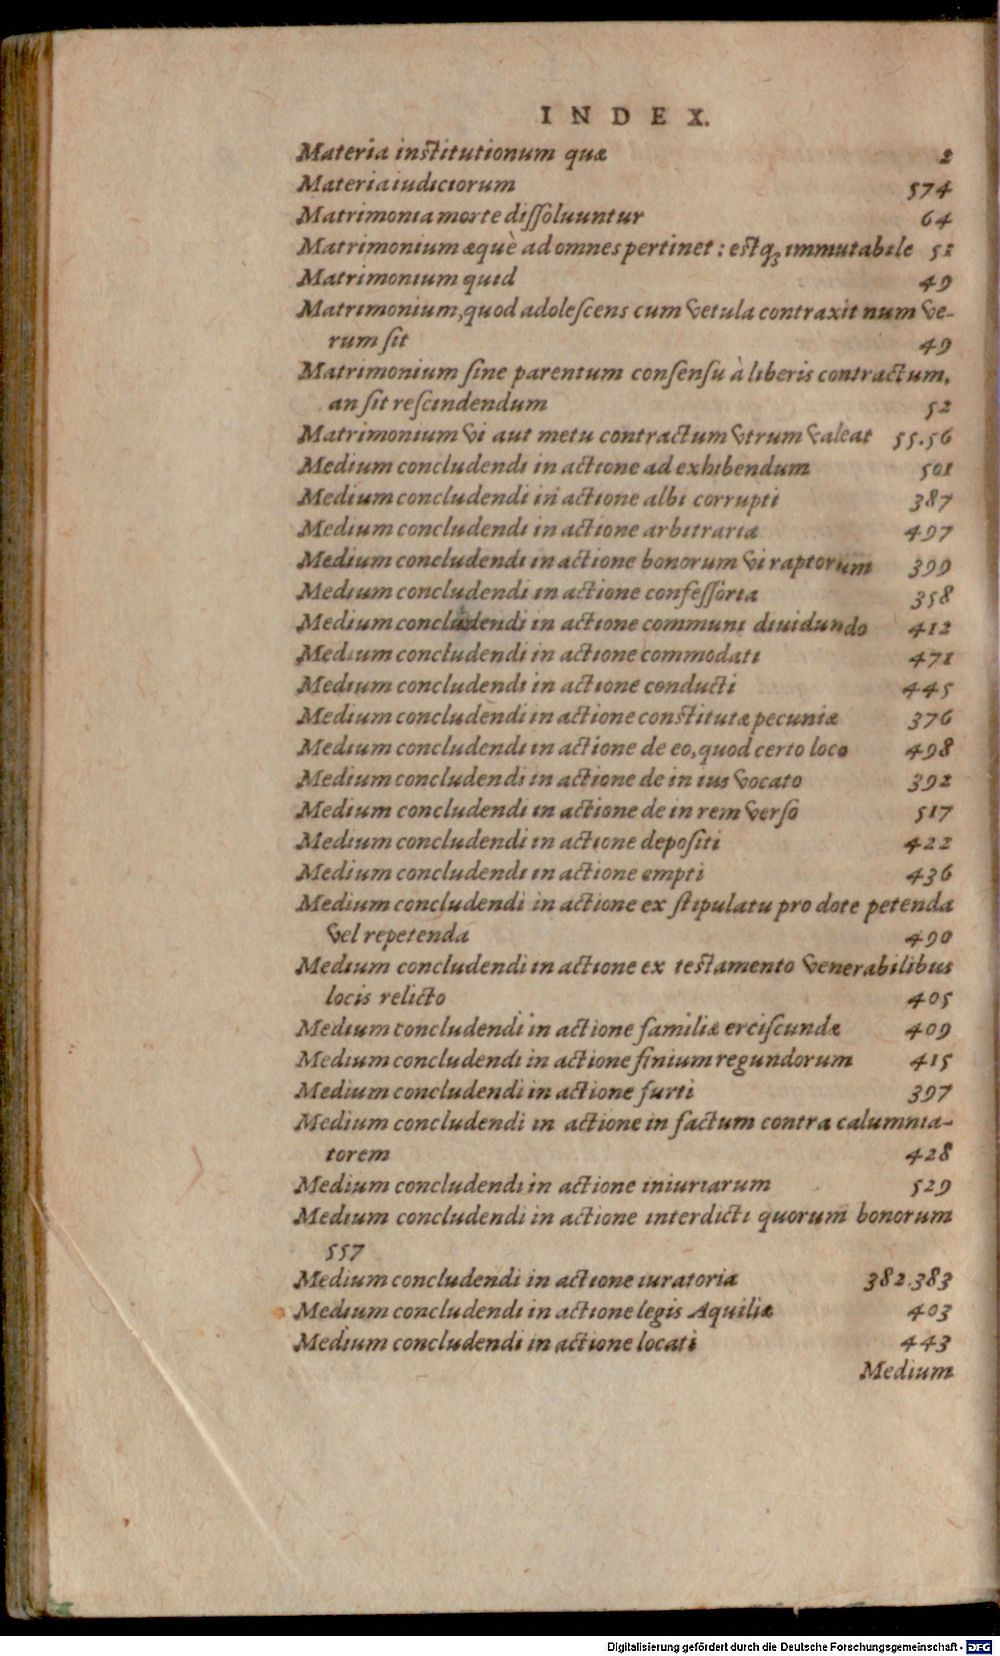 INDEX.
Materia institutionum quæ 2
Materia iudiciorum 574
Matrimonia morte dissoluuntur 64
Matrimonium æquè ad omnes pertinet: estq; immutabile 51
Matrimonium quid 49
Matrimonium, quod adolescens cum vetula contraxit num ve-
rum sit 49
Matrimonium sine parentum consensu à liberis contractum,
an sit rescindendum 52
Matrimonium vi aut metu contractum vtrum valeat 55.56
Medium concludendi in actione ad exhibendum 501
Medium concludendi in actione albi corrupti 387
Medium concludendi in actione arbitraria 497
Medium concludendi in actione bonorum vi raptorum 399
Medium concludendi in actione confessoria 358
Medium concludendi in actione communi diuidundo 412
Medium concludendi in actione commodati 471
Medium concludendi in actione conducti 445
Medium concludendi in actione constitutæ pecuniæ 376
Medium concludendi in actione de eo, quod certo loco 498
Medium concludendi in actione de in ius vocato 392
Medium concludendi in actione de in rem verso 517
Medium concludendi in actione depositi 422
Medium concludendi in actione empti 436
Medium concludendi in actione ex stipulatu pro dote petenda
vel repetenda 490
Medium concludendi in actione ex testamento venerabilibus
locis relicto 405
Medium concludendi in actione familiæ erciscundæ 409
Medium concludendi in actione finium regundorum 415
Medium concludendi in actione furti 397
Medium concludendi in actione in factum contra calumnia-
torem 428
Medium concludendi in actione iniuriarum 529
Medium concludendi in actione interdicti quorum bonorum
557
Medium concludendi in actione iuratoria 382.383
Medium concludendi in actione legis Aquiliæ 403
Medium concludendi in actione locati 443
Medium
Digitalisierung gefördert durch die Deutsche Forschungsgemeinschaft - DFG